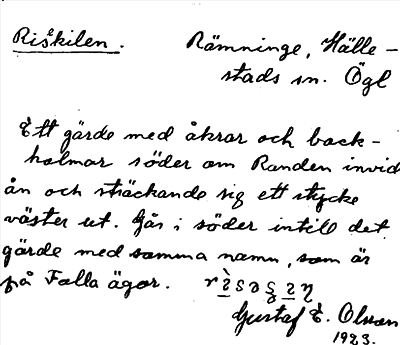 Riskilen.
Rämninge, Hälle-
stads sn. Ögl
Ett gärde med åkrar och back-
holmar söder om Randen invid
ån och sträckande sig ett stycke
väster ut. Går i söder intill det
gärde med samma namn, som är
på Falla ägor.
Gustaf E. Olsson
1923.